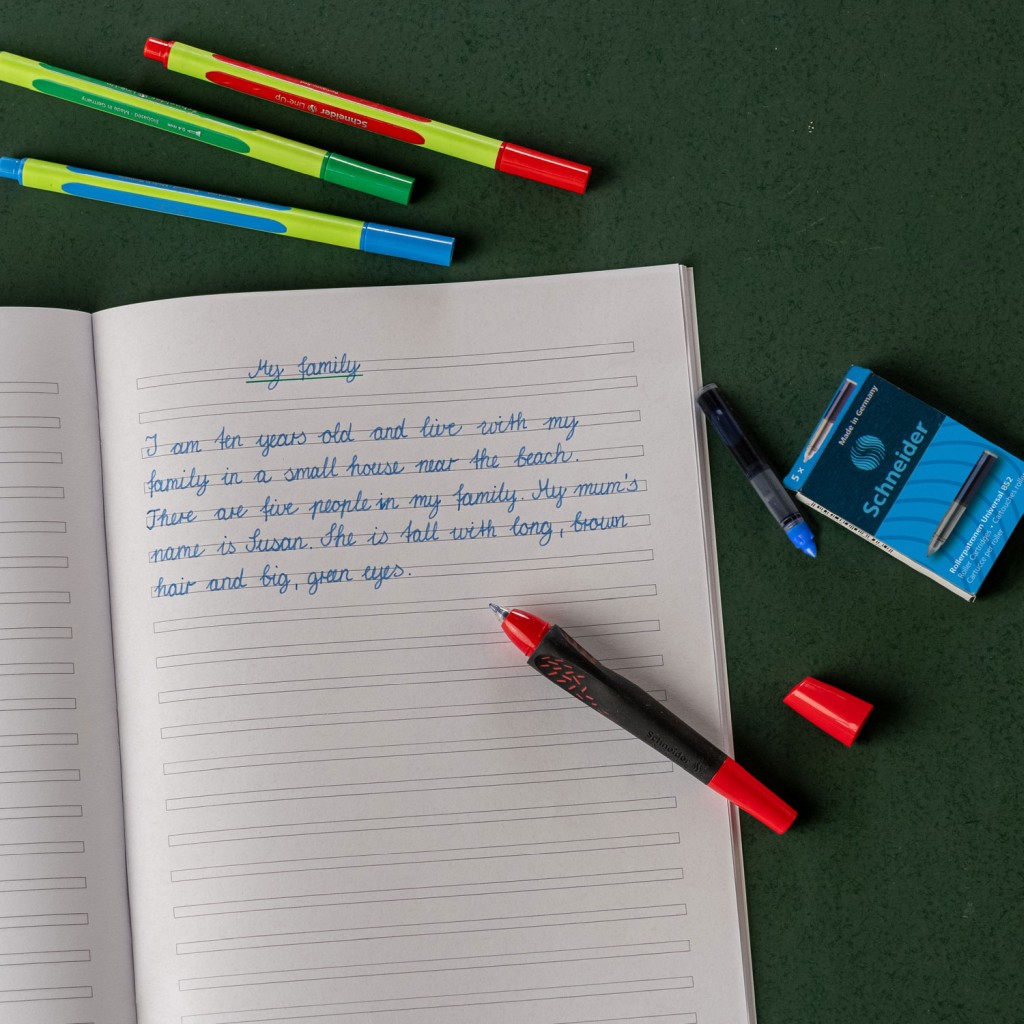 Schneider Line-Up
Made in Germany
My family
I am ten years old and live with my
family in a small house near the beach.
There are five people in my family. My mum's
name is Susan. She is tall with long, brown
hair and big, green eyes.
Schneider
5 x
Made in Germany
Schneider
Rollerpatronen Universal 852
Roller Cartridges • Cartouches
Cartuce per roller